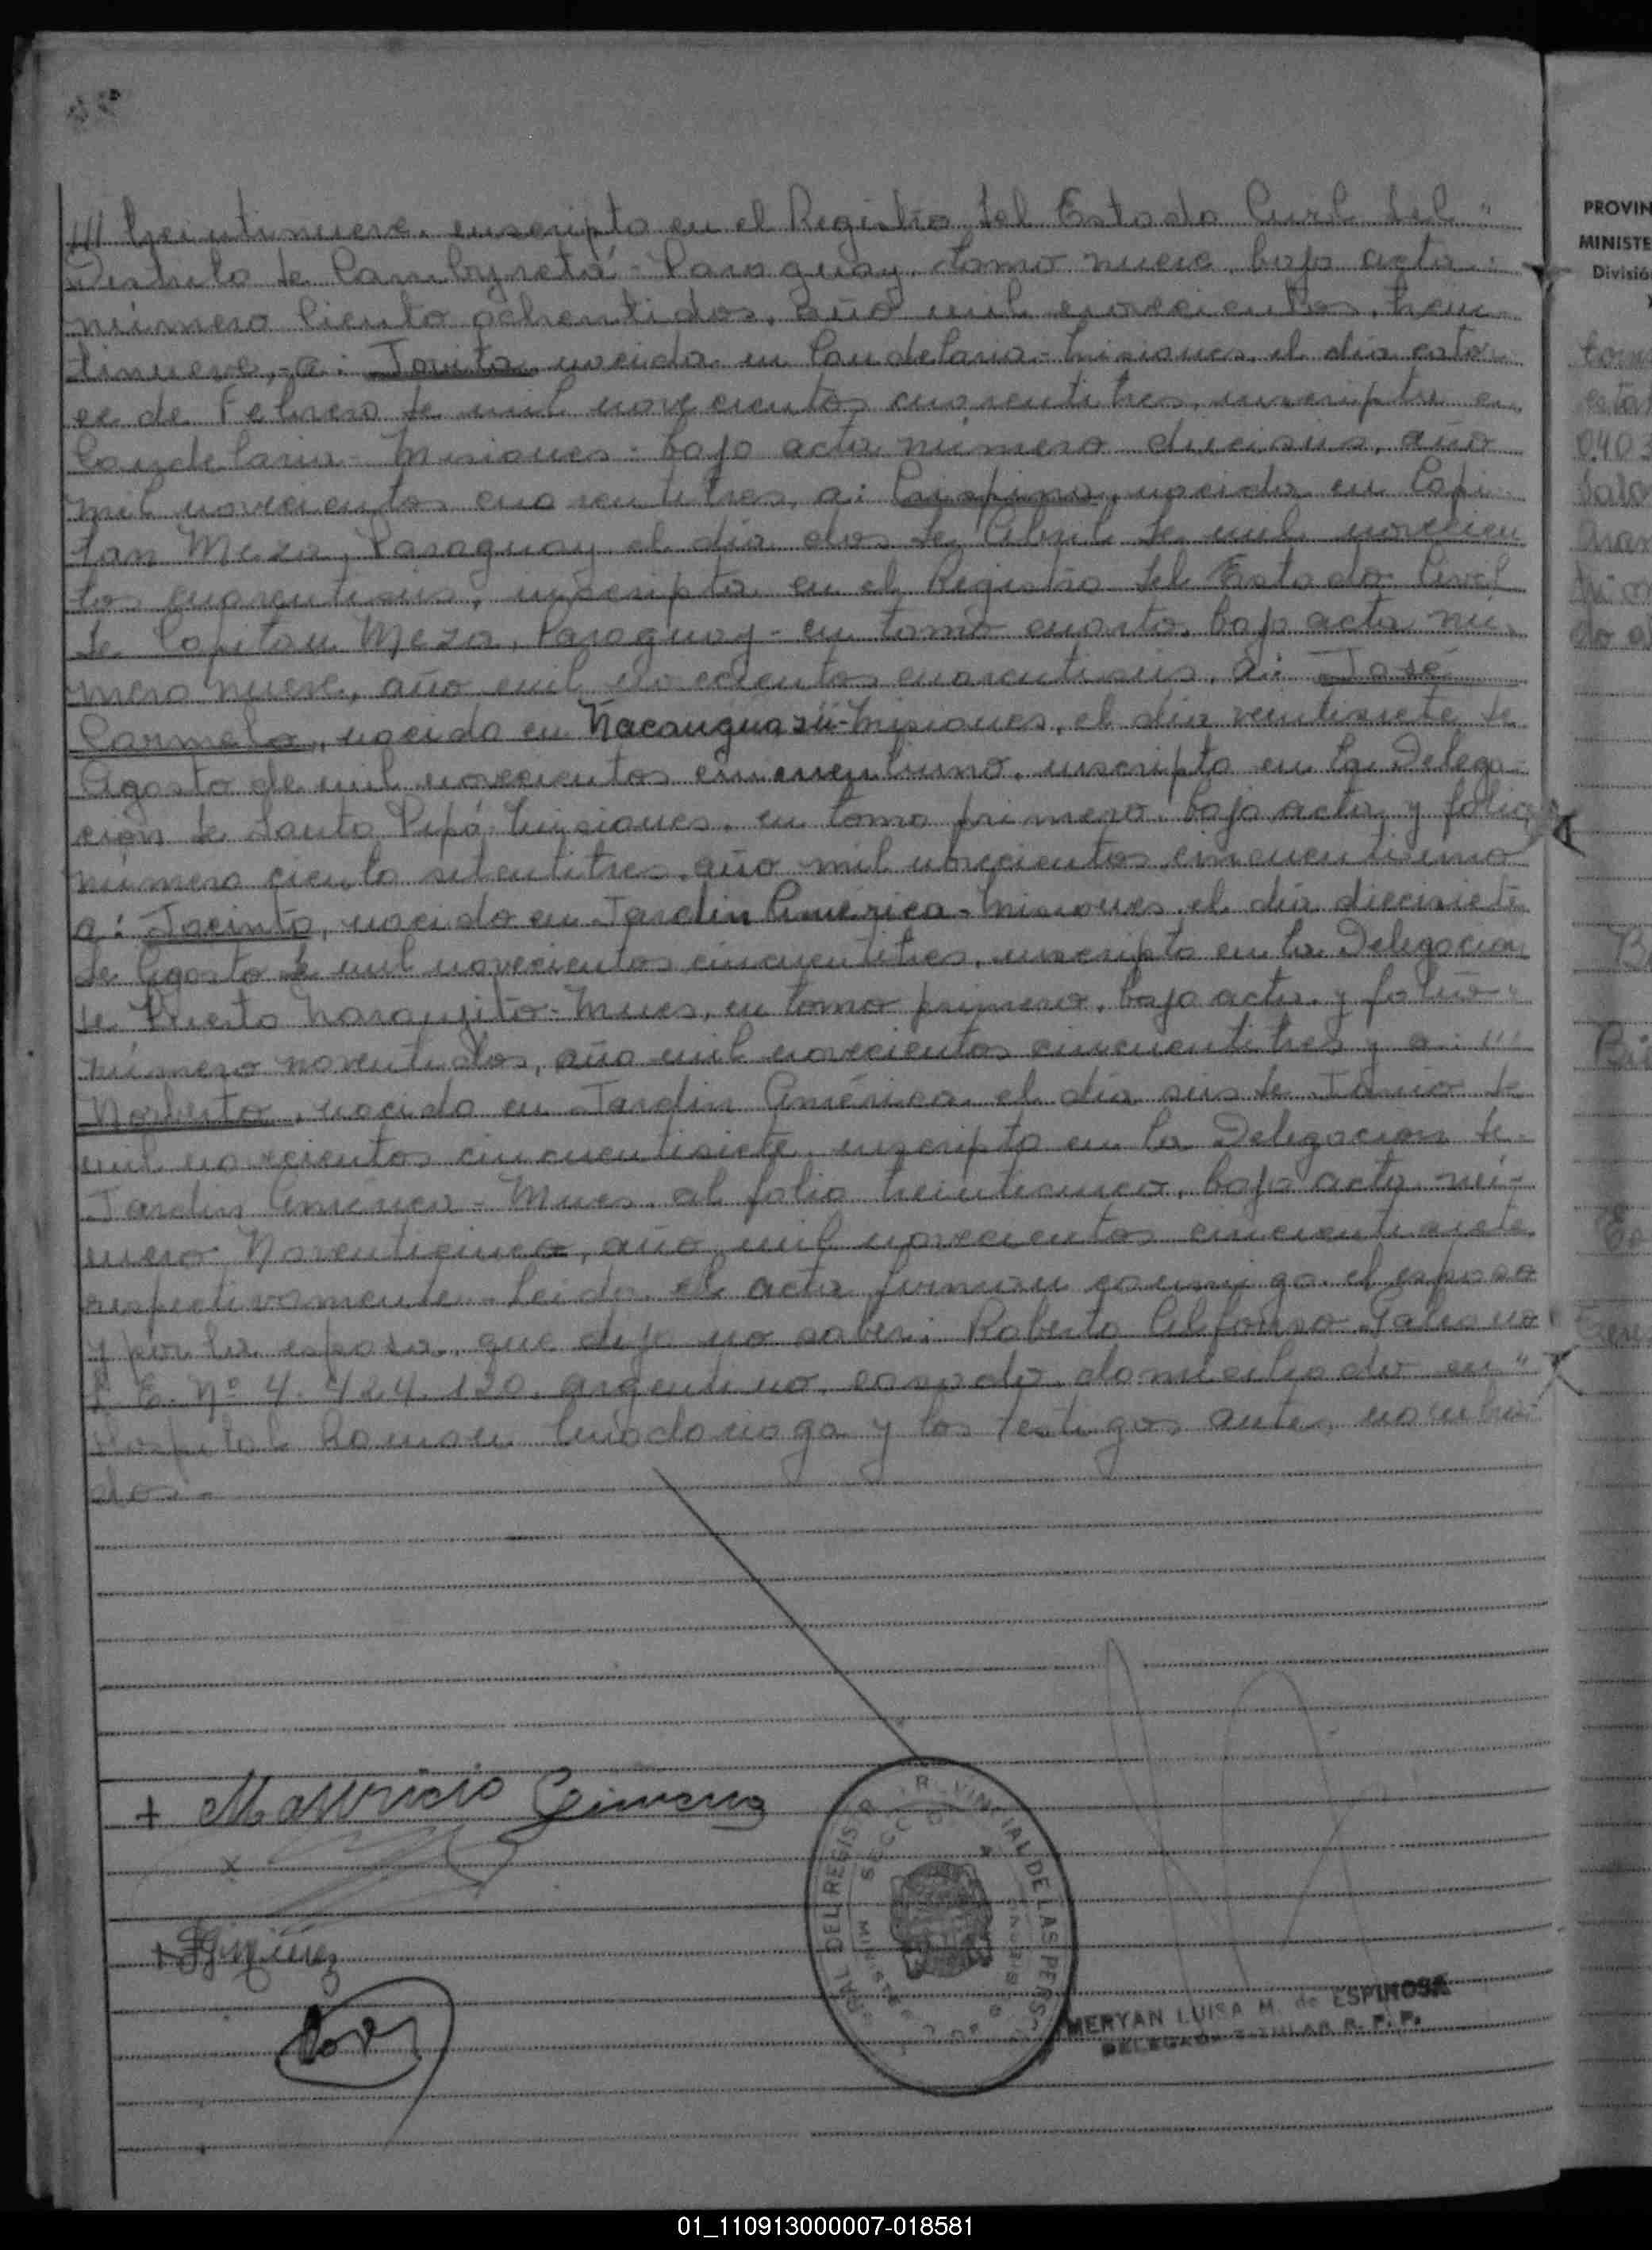 /// treintinueve, inscripto en el Registro del Estado Civil del "
Distrito de Cambyretá - Paraguay, tomo nueve, bajo acta
número ciento ochentidos, año mil novecientos, trein
tinueve, - a: Jovita nacida en Candelaria - Misiones, el día cator
ce de Febrero de mil novecientos cuarentitres, inscripta en
Candelaria - Misiones - bajo acta número dieciseis, año
mil novecientos cuarentitres, a: Crispina, nacida en Capi
tan Meza, Paraguay, el día dos de Abril de mil novecien
tos cuarentiseis, inscripta en el Registro del Estado Civil
de Capitan Meza, Paraguay - en tomo cuarto, bajo acta nú
mero nueve, año mil novecientos cuarentiseis, a: José
Carmelo, nacido en Ñacanguazú - Misiones, el día veintisiete de
Agosto de mil novecientos cincuentiuno, inscripto en la Delega
ción de Santo Pipó Misiones, en tomo primero, bajo acta y folio
número ciento setentitres, año mil novecientos cincuentiuno
a: Jacinto, nacido en Jardin América - Misiones, el día diecisiete
de Agosto de mil novecientos cincuentitres, inscripto en la Delegacion
de Puerto Naranjito - Mnes, en tomo primero, bajo acta y folio
número noventidos, año mil novecientos cincuentitres y a: ///
Norberto, nacido en Jardin América, el día seis de Junio de
mil novecientos cincuentisiete, inscripto en la Delegacion de
Jardin América - Mnes, al folio treinticinco, bajo acta nú-
mero Noventicinco, año mil novecientos cincuentisiete
respectivamente. - Leida el acta firman conmigo el esposo
y por la esposa, que dijo no saber: Roberto Alfonso Galeano
L. E. Nº 4. 424. 120, argentino, casado, domiciliado en "
Hospital Ramon Madariaga y los testigos antes nombra
dos. -
+ Mauricio Gimenez
x
+
01_110913000007-018581
PROVIN
MINISTE
Divisió
MERYAN LUISA M. de ESPINOSA
DELEGADA TITULAR R. P. P.